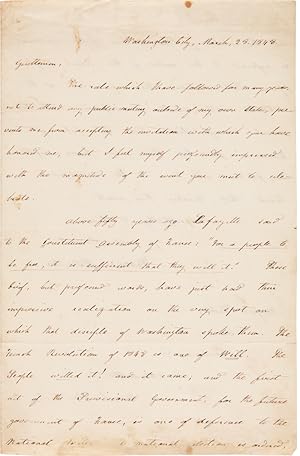 Washington City, March, 23. 1848.
Gentlemen,
The rule which I have followed for many years,
not to attend any public meeting outside of my own State, pre-
vents me from accepting the invitation with which you have
honored me, but I feel myself profoundly impressed
with the magnitude of the event you meet to cele-
brate.
Above fifty years ago Lafayette said
to the Constituent Assembly of France: For a people to
be free, it is sufficient that they will it! These
brief, but profound words, have just had their
impressive realization on the very spot on
which that disciple of Washington spoke them. The
French Revolution of 1848 is one of Will. The
People willed it! and it came; and the first
act of the Provisional Government, for the future
government of France, is one of deference to the
National
national election is ordered,